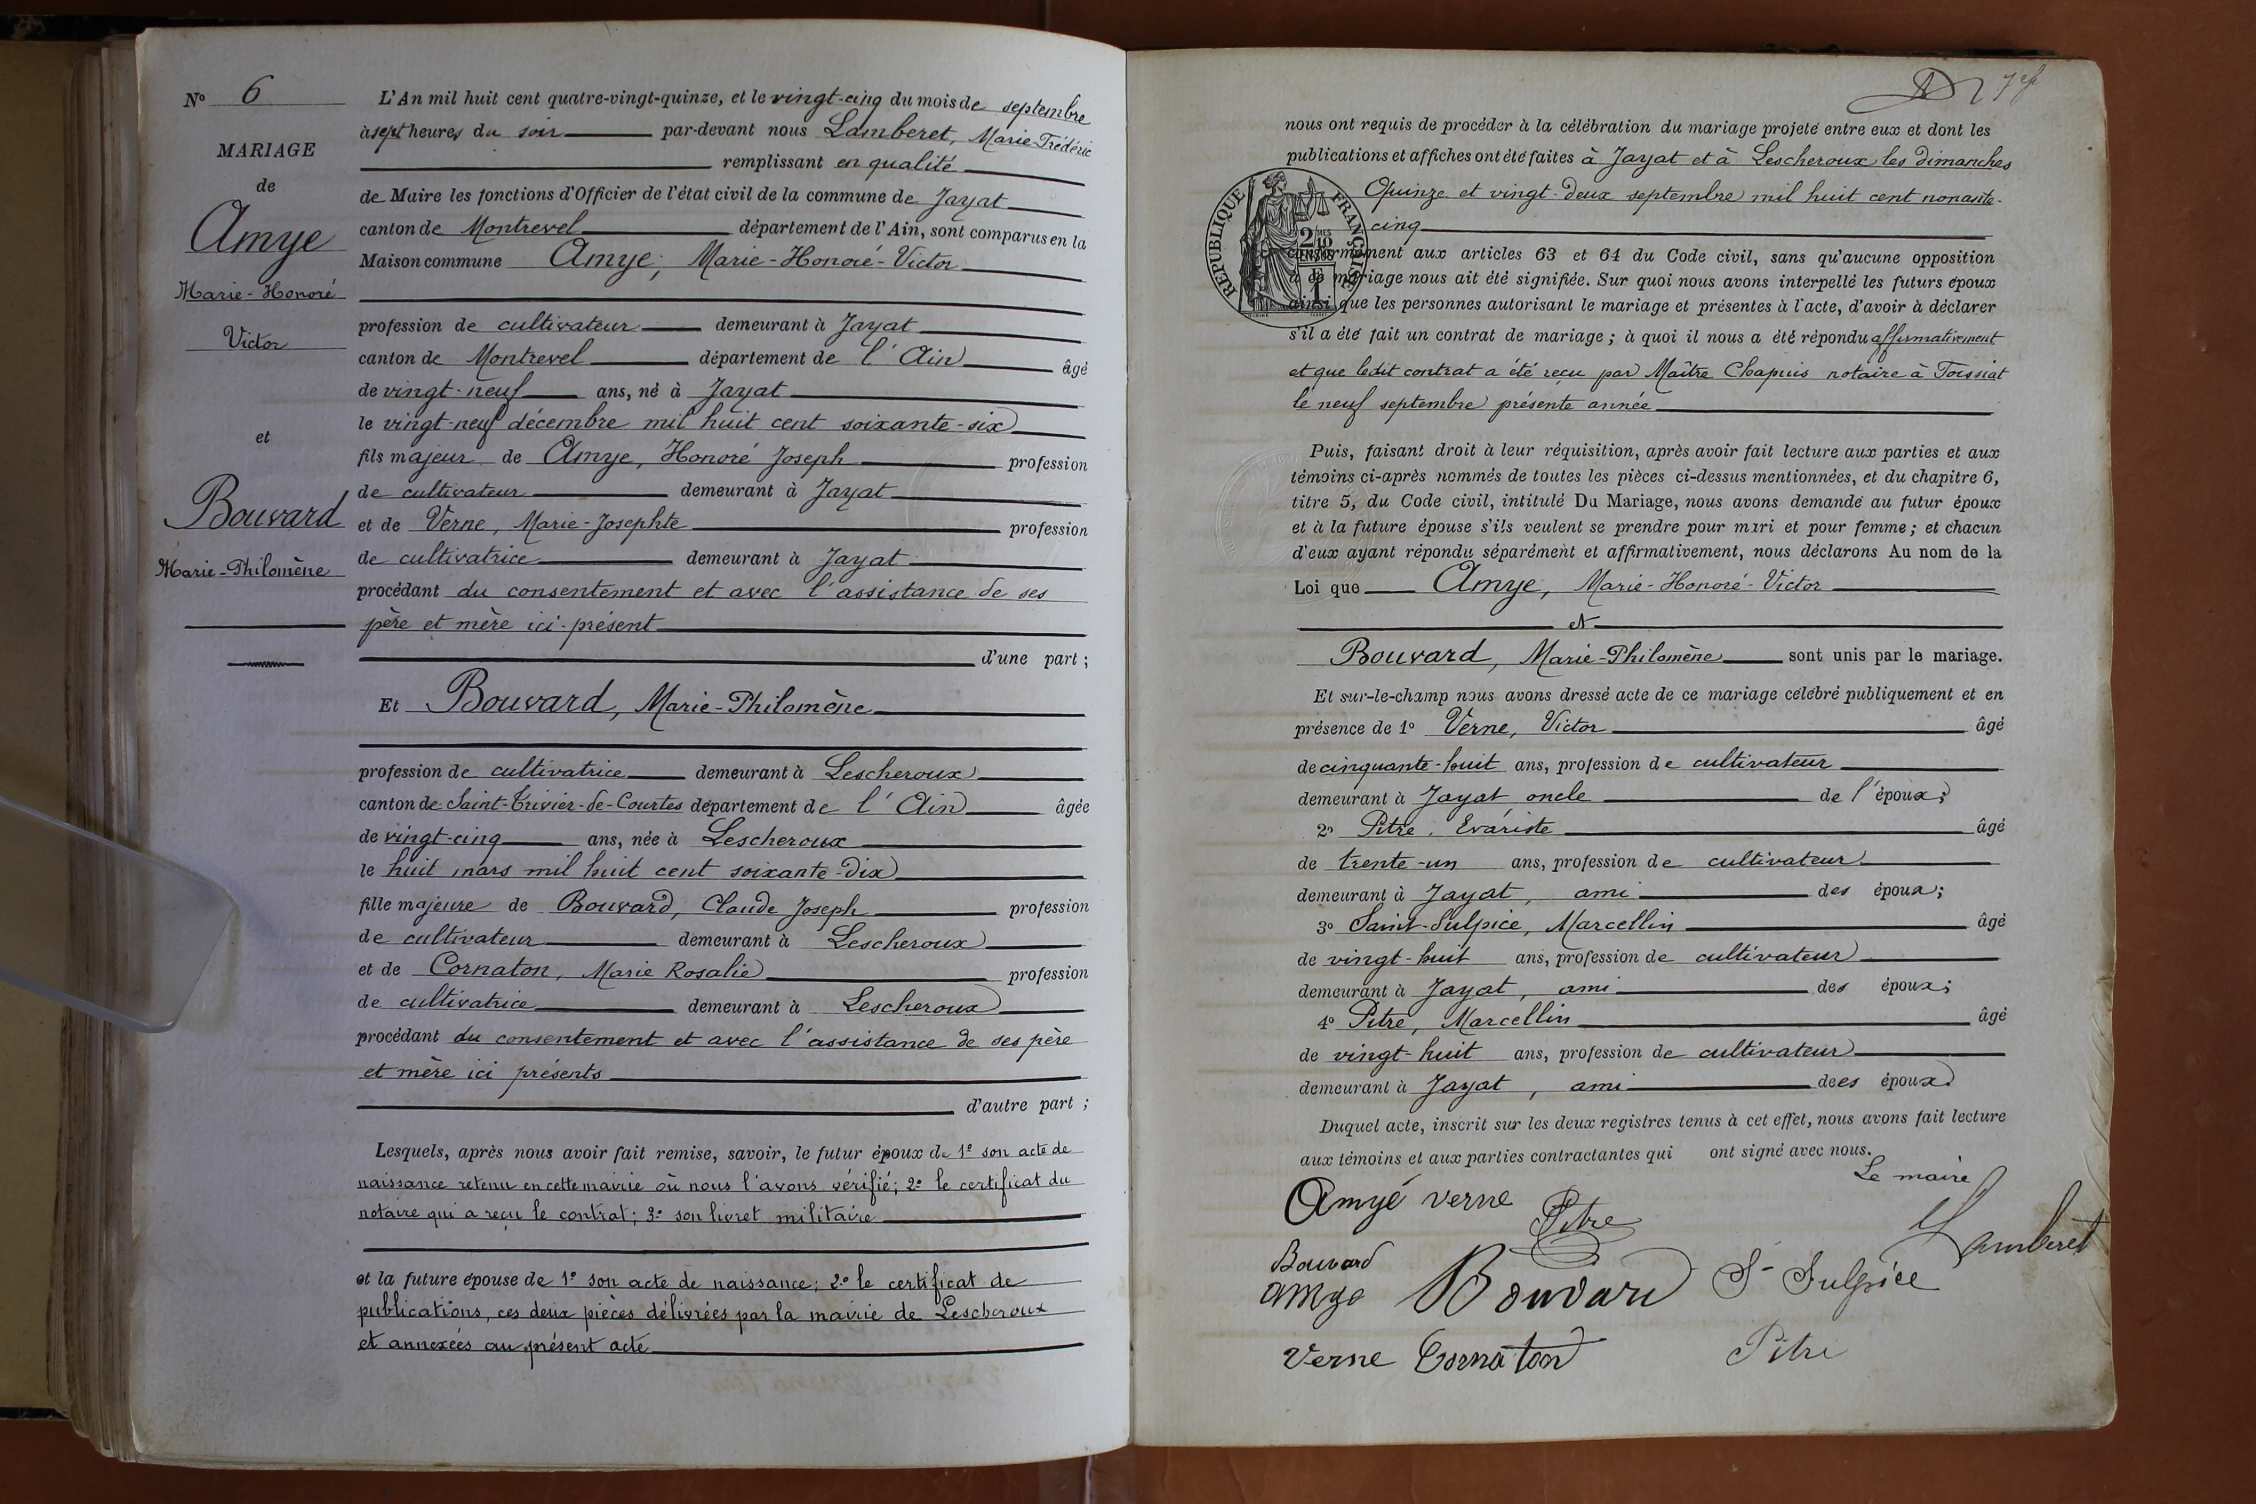 N° 6
MARIAGE
de
Amye
Marie-Honoré
Victor
et
Bouvard
Marie-Philomène
L'An mil huit cent quatre-vingt-quinze, et le vingt-cinq du mois de septembre
à sept heures du soir par-devant nous Lamberet, Marie-Frédéric
remplissant en qualité
de Maire les fonctions d'Officier de l'état civil de la commune de Jayat
canton de Montrevel département de l'Ain, sont comparus en la
Maison commune Amye, Marie-Honoré-Victor
profession de cultivateur demeurant à Jayat
canton de Montrevel département de l'Ain âgé
de vingt-neuf ans, né à Jayat
le vingt-neuf décembre mil huit cent soixante-six
fils majeur de Amye, Honoré Joseph profession
de cultivateur demeurant à Jayat
et de Verne, Marie-Josephte profession
de cultivatrice demeurant à Jayat
procédant du consentement et avec l'assistance de ses
père et mère ici-présent
d'une part ;
Et Bouvard, Marie-Philomène
profession de cultivatrice demeurant à Lescheroux
canton de Saint-Trivier-de-Courtes département de l'Ain âgée
de vingt-cinq ans, née à Lescheroux
le huit mars mil huit cent soixante-dix
fille majeure de Bouvard, Claude Joseph profession
de cultivateur demeurant à Lescheroux
et de Cornaton, Marie Rosalie profession
de cultivatrice demeurant à Lescheroux
procédant du consentement et avec l'assistance de ses père
et mère ici présents
d'autre part ;
Lesquels, après nous avoir fait remise, savoir, le futur époux de 1° son acte de
naissance retenu en cette mairie où nous l'avons vérifié; 2° le certificat du
notaire qui a reçu le contrat; 3° son livret militaire
et la future épouse de 1° son acte de naissance; 2° le certificat de
publications, ces deux pièces délivrées par la mairie de Lescheroux
et annexées au présent acte
nous ont requis de procéder à la célébration du mariage projeté entre eux et dont les
publications et affiches ont été faites à Jayat et à Lescheroux les dimanches
Quinze et vingt-deux septembre mil huit cent nonante-
cinq
RÉPUBLIQUE FRANÇAISE
2/10
EN SUS
conformément aux articles 63 et 64 du Code civil, sans qu'aucune opposition
à ce mariage nous ait été signifiée. Sur quoi nous avons interpellé les futurs époux
ainsi que les personnes autorisant le mariage et présentes à l'acte, d'avoir à déclarer
s'il a été fait un contrat de mariage ; à quoi il nous a été répondu affirmativement
et que ledit contrat a été reçu par Maître Chapuis notaire à Foissiat
le neuf septembre présente année
Puis, faisant droit à leur réquisition, après avoir fait lecture aux parties et aux
témoins ci-après nommés de toutes les pièces ci-dessus mentionnées, et du chapitre 6,
titre 5, du Code civil, intitulé Du Mariage, nous avons demandé au futur époux
et à la future épouse s'ils veulent se prendre pour mari et pour femme ; et chacun
d'eux ayant répondu séparément et affirmativement, nous déclarons Au nom de la
Loi que Amye, Marie-Honoré-Victor
et
Bouvard, Marie-Philomène sont unis par le mariage.
Et sur-le-champ nous avons dressé acte de ce mariage célébré publiquement et en
présence de 1° Verne, Victor âgé
de cinquante-huit ans, profession de cultivateur
demeurant à Jayat oncle de l'époux;
2° Pitre, Evariste âgé
de trente-un ans, profession de cultivateur
demeurant à Jayat, ami des époux;
3° Saint-Sulpice, Marcellin âgé
de vingt-huit ans, profession de cultivateur
demeurant à Jayat, ami des époux;
4° Pitre, Marcellin âgé
de vingt-huit ans, profession de cultivateur
demeurant à Jayat, ami dees époux.
Duquel acte, inscrit sur les deux registres tenus à cet effet, nous avons fait lecture
aux témoins et aux parties contractantes qui ont signé avec nous.
Le maire
Amyé verne
Pitre
Lamberet
Bouvard
amye Bouvard St Sulpice
Verne Cornaton Pitre